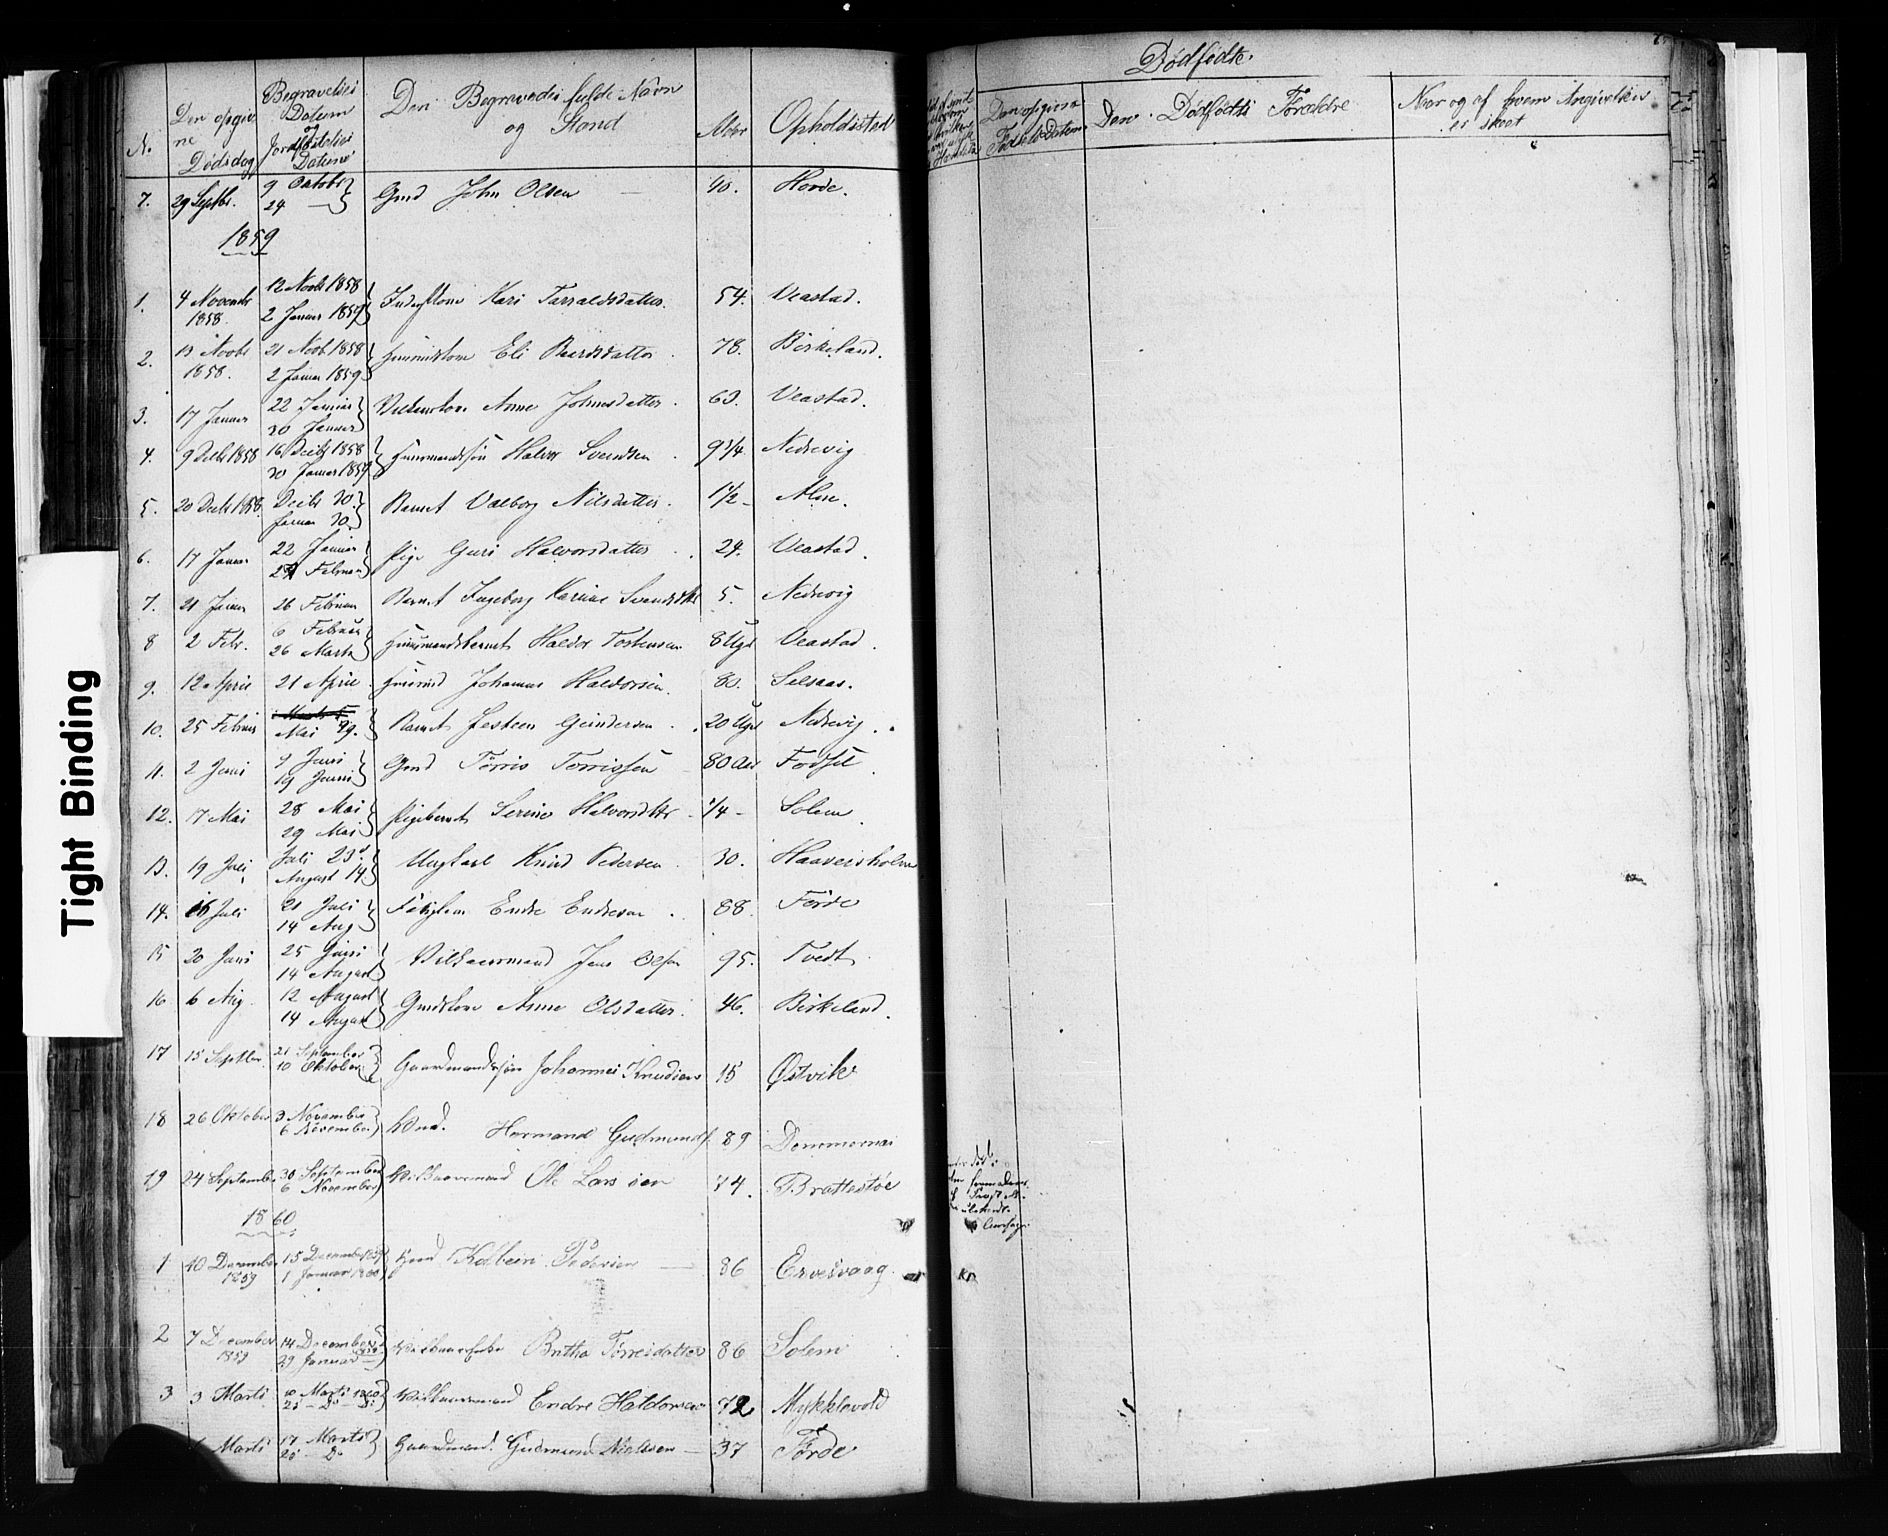 Tight Binding
N.
Den opgiv
ne
Dødsdag
Begravelses
Datum
og
Jordfæstelses
Datum
Den Begravedes fulde Navn
og Stand
Alder
Opholdssted
7. 29 Septbr. 9 Octobr 24 — Gmd John Olsen — 40. Hovde.
1859
1. 4 Novembr 1858. 12 Novbr 1858 2 Januar 1859 Kari Tarraldsdatter 54. Veastad.
2. 13 Novbr 1858. 21 Novb 1858 2 Januar 1859 Eli Baardsdatter. 78. Birkeland.
3. 17 Januar 22 Januar 30 Januar Anne Johnsdatter. 63. Veastad.
4. 9 Decbr 1858 16 Decbr 1858 30 Januar 1859 Huusmandssøn Halvor Svendsen. 9 3/4. Nedrevig
5. 20 Decbr 1858. Decbr 30. Januar 30. Barnet Valborg Nilsdatter. 1 1/2 - Alne.
6. 17 Januar 22 Januar 27 Februar Pige Guri Halvorsdatter. 24. Veastad.
7. 21 Januar 26 Februar Barnet Ingeborg Karine Svendsdtter 5. Nedrevig
8 2 Febr. 6 Februar 26 Marts Huusmandsbarnet Haldor Tostensen 8 Uger Veastad.
9. 12 April 21 April. Huusmd Johannes Haldorsen. 80. Selsaas.
10. 25 Februar Mai 29. Barnet Gundersen. 20 Uger Nedrevig.
11. 2 Juni 9 Juni 19 Juni Gmd Tørris Torrissen 80 Aar Fodset
12. 17 Mai 28 Mai 29 Mai Pigebarnet Serine Halvorsdtter - 1/4 - Solem
13. 19 Juli Juli 23. August 14. Ungkarl Knud Pedersen. 30. Haavesholm
14. 16 Juli 21 Juli 14 Aug Fattiglem Endre Endresen. 88. Førde
15 20 Juni 25 Juni 14 August Vilkaarmand Jens Olsen 95. Tvedt.
16 6 Aug. 12 August 14 August Gmdskone Anne Olsdatter. 46. Birkeland.
17 15 Septbr. 21 September 10 Oktober Gaardmandssøn Johannes Knudsen 15 Østvik
18 26 Oktober 3 November 6 November Hermand Gudmunds. 89 Dommernæs
19 24 September 30 September 6 November Vilkaarsmand Ole Larsen 74. Brattestøe
1860
1 10 December 1859 15 December 1859 1 Januar 1860 Gmd Kolbein Pedersen — 86 Ervesvaag.
2 7 December 1859 14 December 1859 29 Januar Britha Tørresdatter 86 Solem
3 3 Marts 10 Marts 1860 25 - Do - Do Vilkaarsmand Endre Haldorsen 72 Mykklevold
Marts 17 Marts 25 - Do Gaardmand. Gudmund Nielssen — 37 Førde
Dødfødte.
Den opgivne
Fødselsdatum
Den Dødfødtes Forældre
Naar og af hvem Angivelsen
er skeet